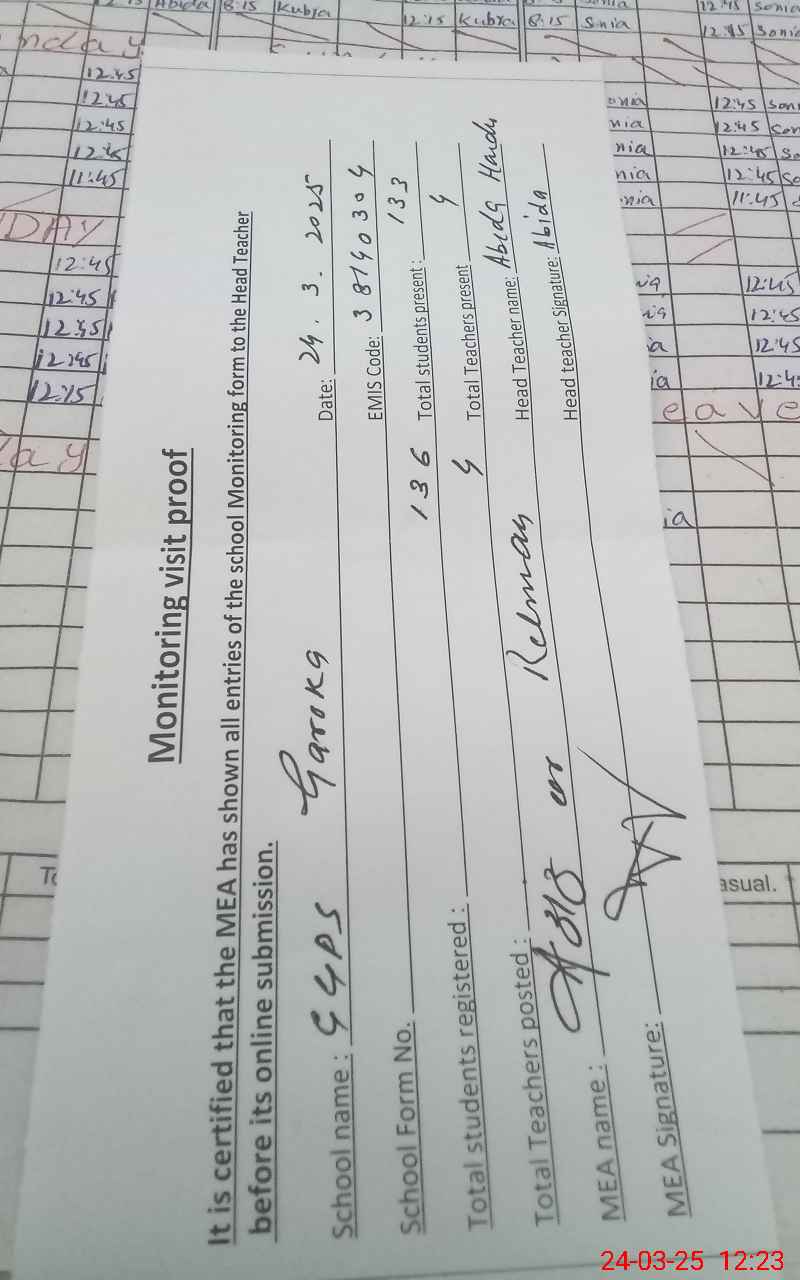 Monitoring visit proof
It is certified that the MEA has shown all entries of the school Monitoring form to the Head Teacher
before its online submission.
School name : GGPS Garoka Date: 24. 3. 2025
School Form No. EMIS Code: 38140304
Total students registered : 136 Total students present : 133
Total Teachers posted : 4 Total Teachers present 4
MEA name : Rehman Head Teacher name: Abida
MEA Signature: Head teacher Signature: Abida
12:15 Abida 8:15 Kubra
12:15 Kubra 8:15 Sonia
12:45 Sonia
12:45
12:45
12:45
12:45
11:45
DAY
12:45
12:45
12:45
12:45
12:15
12:45
12:45
12:45
12:45
11:45
12:45
12:45
12:45
eave
asual.
24-03-25 12:23